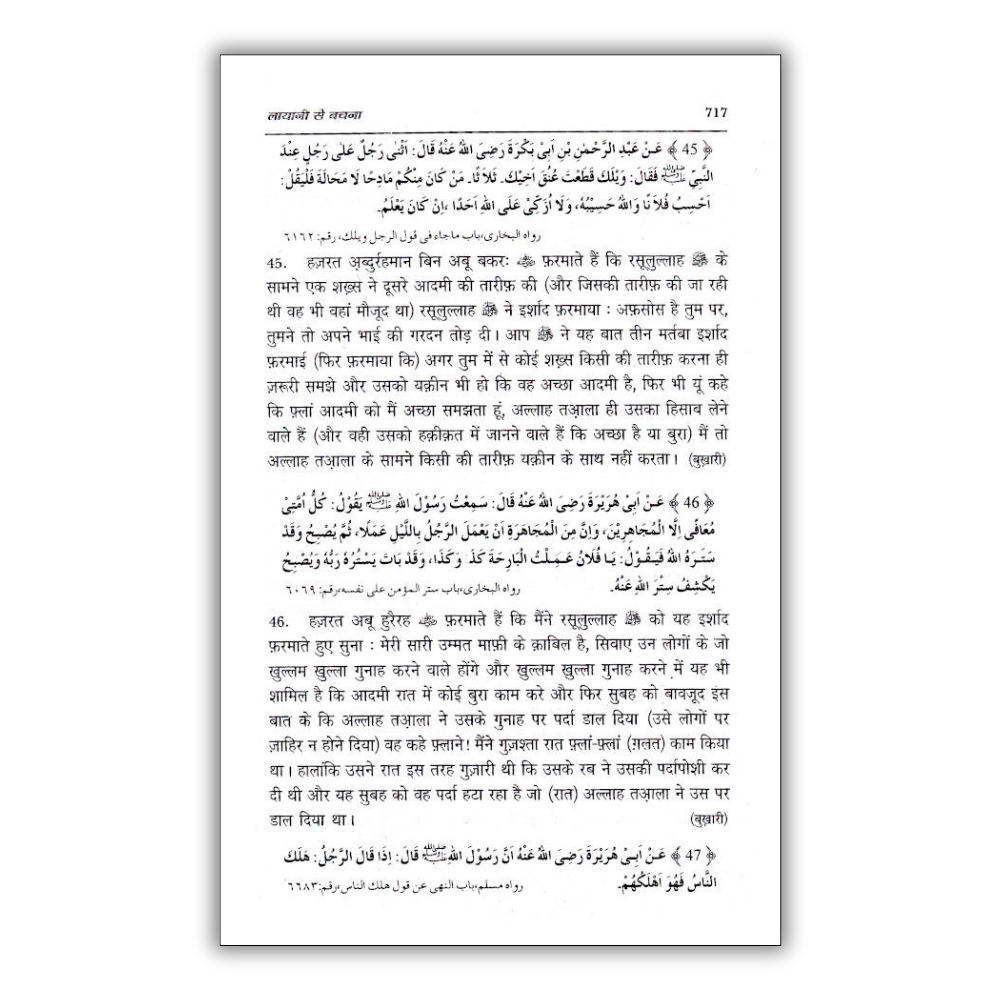 लायानी से बचना 717
﴿ 45 ﴾ عَنْ عَبْدِ الرَّحْمٰنِ بْنِ اَبِىْ بَكْرَةَ رَضِىَ اللهُ عَنْهُ قَالَ: اَثْنٰى رَجُلٌ عَلٰى رَجُلٍ عِنْدَ
النَّبِىِّ ﷺ فَقَالَ: وَيْلَكَ قَطَعْتَ عُنُقَ اَخِيْكَ۔ ثَلاَ ثًا۔ مَنْ كَانَ مِنْكُمْ مَادِحًا لاَ مَحَالَةَ فَلْيَقُلْ:
اَحْسِبُ فُلاَ نًا وَاللهُ حَسِيْبُهٗ، وَلاَ اُزَكِّىْ عَلَى اللهِ اَحَدًا ،اِنْ كَانَ يَعْلَمُ۔
رواه البخارى،باب ماجاء فى قول الرجل ويلك، رقم: ٦١٦٢
45. हज़रत अ़ब्दुर्रहमान बिन अबू बकरः ؓ फ़रमाते हैं कि रसूलुल्लाह ﷺ के
सामने एक शख़्स ने दूसरे आदमी की तारीफ़ की (और जिसकी तारीफ़ की जा रही
थी वह भी वहां मौजूद था) रसूलुल्लाह ﷺ ने इर्शाद फ़रमाया : अफ़सोस है तुम पर,
तुमने तो अपने भाई की गरदन तोड़ दी। आप ﷺ ने यह बात तीन मर्तबा इर्शाद
फ़रमाई (फिर फ़रमाया कि) अगर तुम में से कोई शख़्स किसी की तारीफ़ करना ही
ज़रूरी समझे और उसको यक़ीन भी हो कि वह अच्छा आदमी है, फिर भी यूं कहे
कि फ़्लां आदमी को मैं अच्छा समझता हूं, अल्लाह तआ़ला ही उसका हिसाब लेने
वाले हैं (और वही उसको हक़ीक़त में जानने वाले हैं कि अच्छा है या बुरा) मैं तो
अल्लाह तआ़ला के सामने किसी की तारीफ़ यक़ीन के साथ नहीं करता। (बुख़ारी)
﴿ 46 ﴾ عَنْ اَبِىْ هُرَيْرَةَ رَضِىَ اللهُ عَنْهُ قَالَ: سَمِعْتُ رَسُوْلَ اللهِ ﷺ يَقُوْلُ: كُلُّ اُمَّتِىْ
مُعَافًى اِلَّا الْمُجَاهِرِيْنَ، وَاِنَّ مِنَ الْمُجَاهَرَةِ اَنْ يَعْمَلَ الرَّجُلُ بِاللَّيْلِ عَمَلًا، ثُمَّ يُصْبِحُ وَقَدْ
سَتَرَهُ اللهُ فَيَقُوْلُ: يَا فُلاَنُ عَمِلْتُ الْبَارِحَةَ كَذَ وَكَذَا، وَقَدْ بَاتَ يَسْتُرُهٗ رَبُّهٗ وَيُصْبِحُ
يَكْشِفُ سِتْرَ اللهِ عَنْهُ۔ رواه البخارى،باب ستر المؤمن على نفسه،رقم: ٦٠٦٩
46. हज़रत अबू हुरैरह ؓ फ़रमाते हैं कि मैंने रसूलुल्लाह ﷺ को यह इर्शाद
फ़रमाते हुए सुना : मेरी सारी उम्मत माफ़ी के क़ाबिल है, सिवाए उन लोगों के जो
खुल्लम खुल्ला गुनाह करने वाले होंगे और खुल्लम खुल्ला गुनाह करने में यह भी
शामिल है कि आदमी रात में कोई बुरा काम करे और फिर सुबह को बावजूद इस
बात के कि अल्लाह तआ़ला ने उसके गुनाह पर पर्दा डाल दिया (उसे लोगों पर
ज़ाहिर न होने दिया) वह कहे फ़्लाने! मैंने गुज़श्ता रात फ़्लां-फ़्लां (ग़लत) काम किया
था। हालांकि उसने रात इस तरह गुज़ारी थी कि उसके रब ने उसकी पर्दापोशी कर
दी थी और यह सुबह को वह पर्दा हटा रहा है जो (रात) अल्लाह तआ़ला ने उस पर
डाल दिया था। (बुख़ारी)
﴿ 47 ﴾ عَنْ اَبِىْ هُرَيْرَةَ رَضِىَ اللهُ عَنْهُ اَنَّ رَسُوْلَ اللهِ ﷺ قَالَ: اِذَا قَالَ الرَّجُلُ: هَلَكَ
النَّاسُ فَهُوَ اَهْلَكُهُمْ۔ رواه مسلم،باب النهى عن قول هلك الناس،رقم:٦٦٨٣